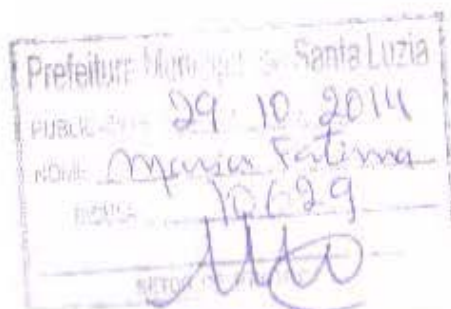 Prefeitura Municipal de Santa Luzia
29.10.2014
NOME Maria Fatima
10629
SETOR